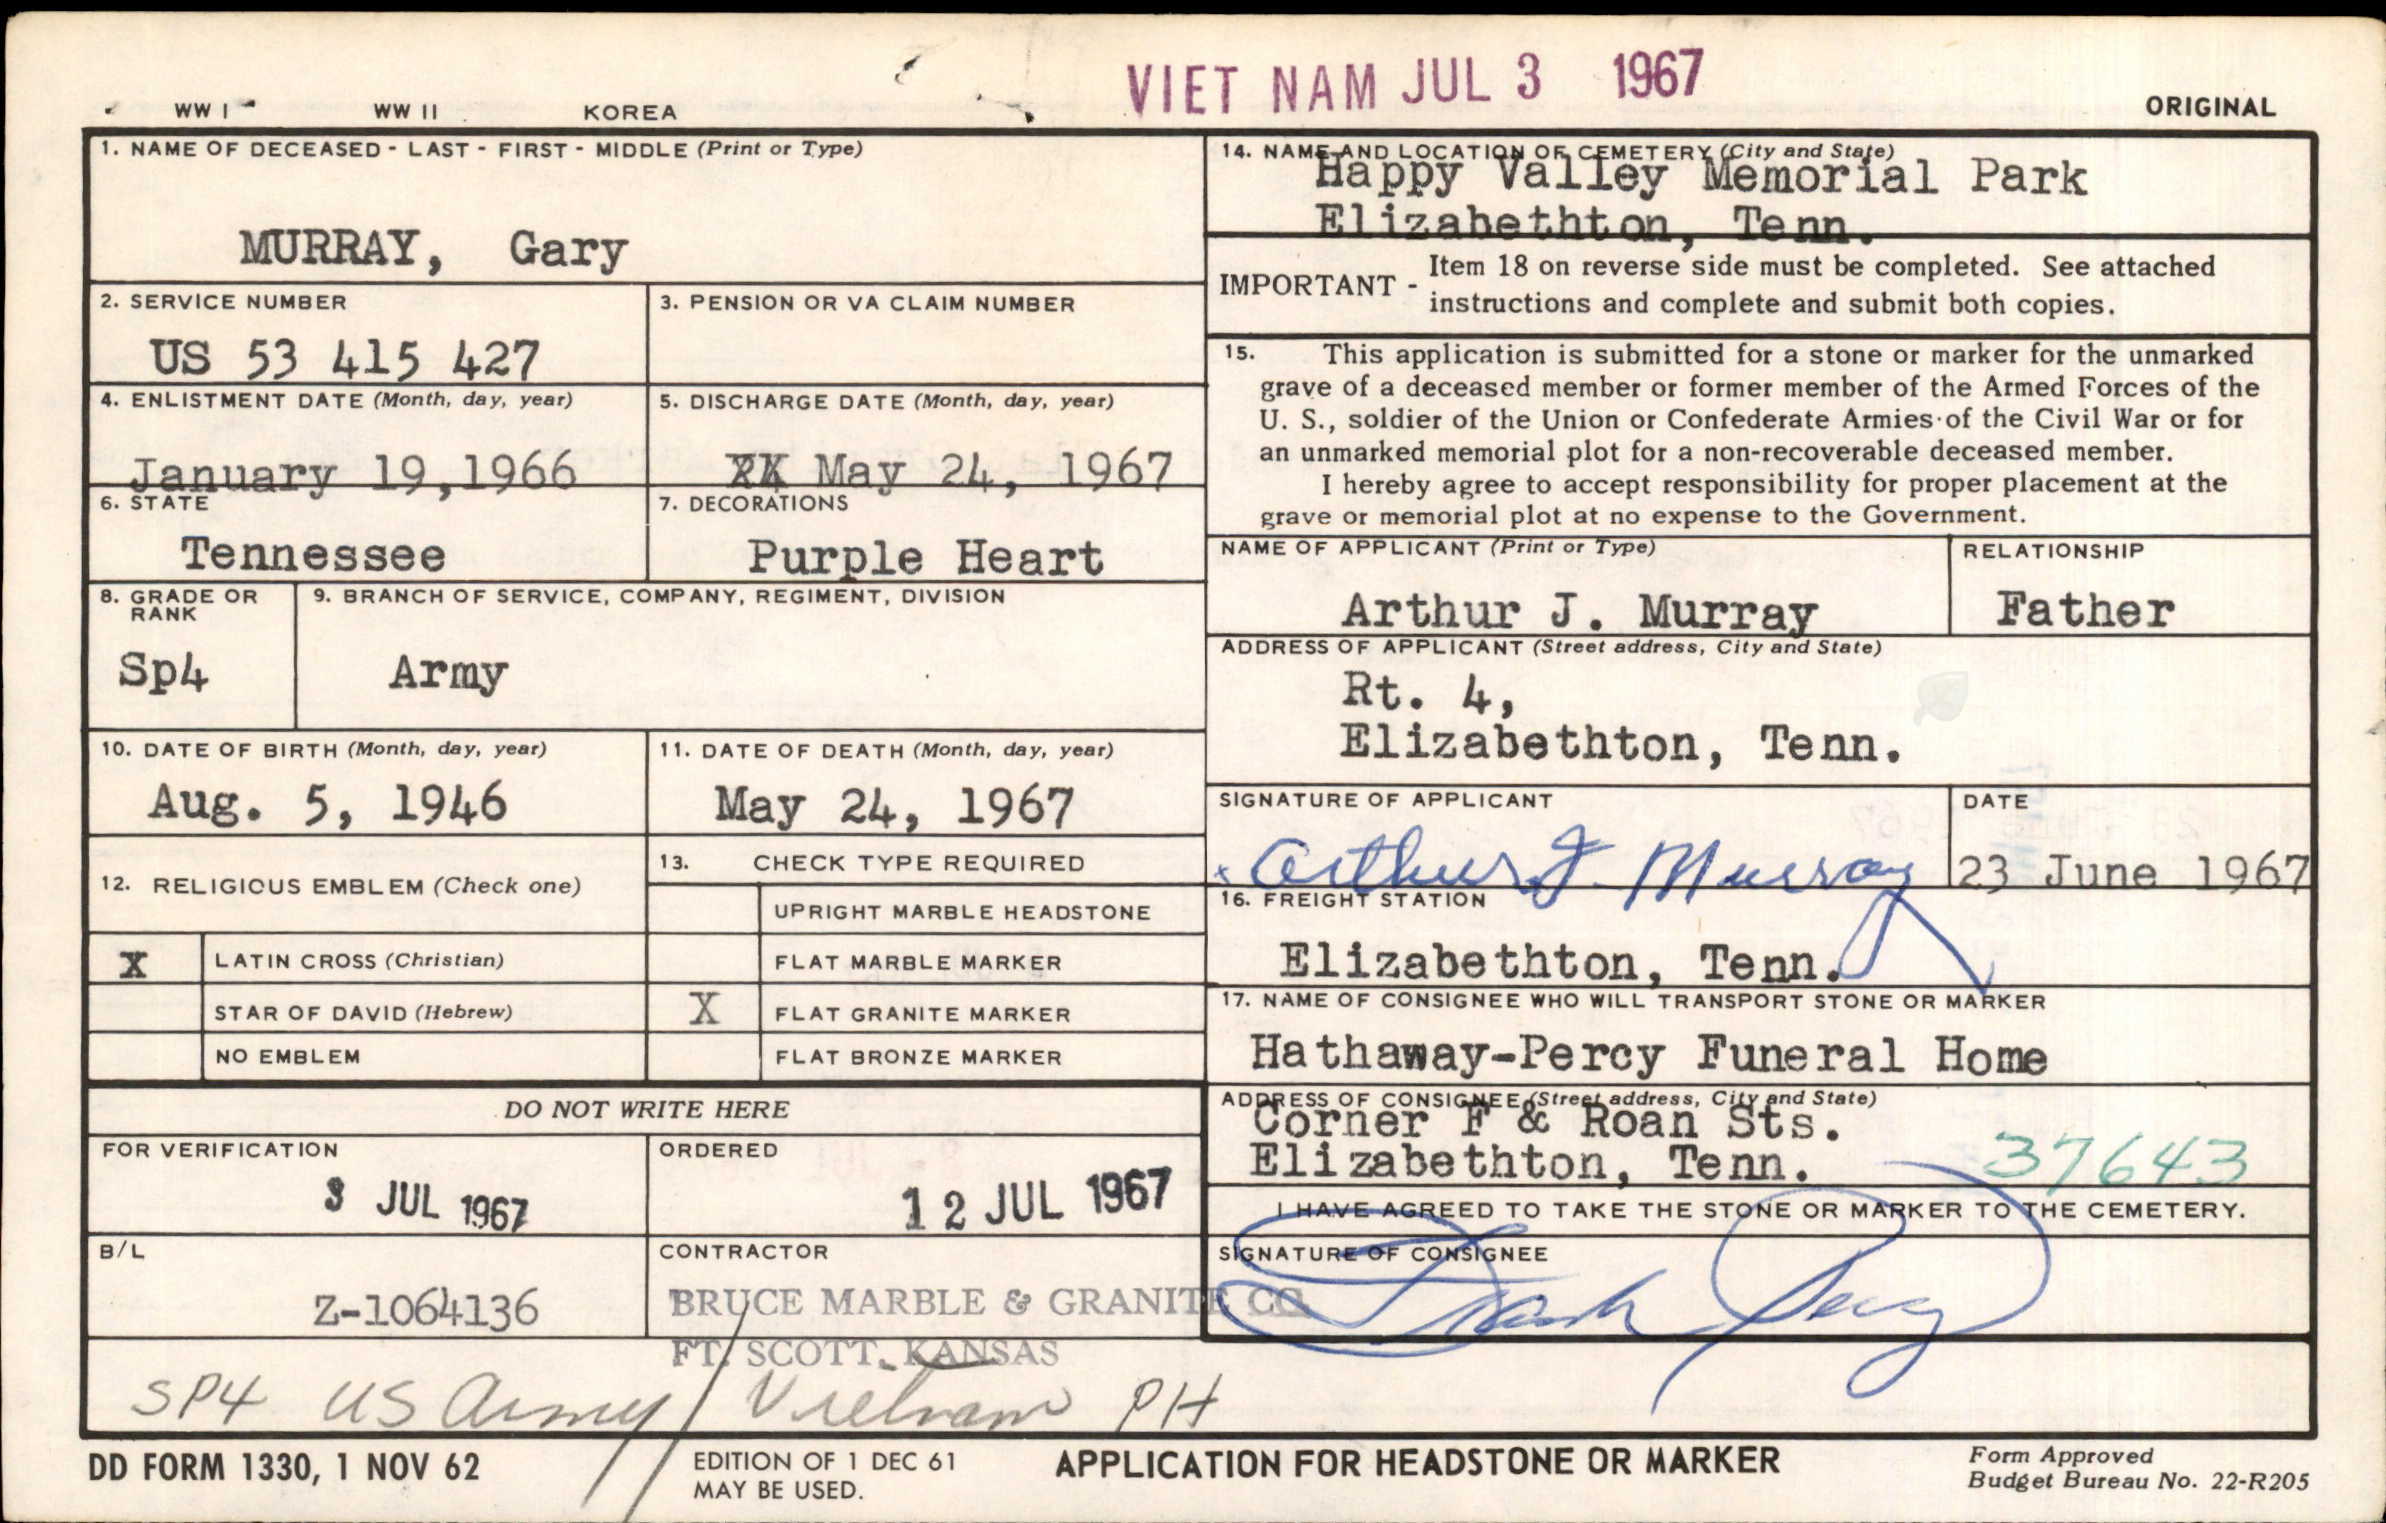 VIET NAM JUL 3 1967
WW I WW II KOREA ORIGINAL
1. NAME OF DECEASED - LAST - FIRST - MIDDLE (Print or Type)
MURRAY, Gary
2. SERVICE NUMBER
US 53 415 427
3. PENSION OR VA CLAIM NUMBER
4. ENLISTMENT DATE (Month, day, year)
January 19,1966
5. DISCHARGE DATE (Month, day, year)
May 24, 1967
6. STATE
Tennessee
7. DECORATIONS
Purple Heart
8. GRADE OR
RANK
Sp4
9. BRANCH OF SERVICE, COMPANY, REGIMENT, DIVISION
Army
10. DATE OF BIRTH (Month, day, year)
Aug. 5, 1946
11. DATE OF DEATH (Month, day, year)
May 24, 1967
12. RELIGIOUS EMBLEM (Check one)
X LATIN CROSS (Christian)
STAR OF DAVID (Hebrew)
NO EMBLEM
13. CHECK TYPE REQUIRED
UPRIGHT MARBLE HEADSTONE
FLAT MARBLE MARKER
X FLAT GRANITE MARKER
FLAT BRONZE MARKER
DO NOT WRITE HERE
FOR VERIFICATION
3 JUL 1967
ORDERED
12 JUL 1967
B/L
Z-1064136
CONTRACTOR
BRUCE MARBLE & GRANITE CO.
FT. SCOTT, KANSAS
SP4 US Army / Vietnam PH
14. NAME AND LOCATION OF CEMETERY (City and State)
Happy Valley Memorial Park
Elizabethton, Tenn.
IMPORTANT - Item 18 on reverse side must be completed. See attached
instructions and complete and submit both copies.
15. This application is submitted for a stone or marker for the unmarked
grave of a deceased member or former member of the Armed Forces of the
U. S., soldier of the Union or Confederate Armies of the Civil War or for
an unmarked memorial plot for a non-recoverable deceased member.
I hereby agree to accept responsibility for proper placement at the
grave or memorial plot at no expense to the Government.
NAME OF APPLICANT (Print or Type)
Arthur J. Murray
RELATIONSHIP
Father
ADDRESS OF APPLICANT (Street address, City and State)
Rt. 4,
Elizabethton, Tenn.
SIGNATURE OF APPLICANT
x Arthur J. Murray
DATE
23 June 1967
16. FREIGHT STATION
Elizabethton, Tenn.
17. NAME OF CONSIGNEE WHO WILL TRANSPORT STONE OR MARKER
Hathaway-Percy Funeral Home
ADDRESS OF CONSIGNEE (Street address, City and State)
Corner F & Roan Sts.
Elizabethton, Tenn. 37643
I HAVE AGREED TO TAKE THE STONE OR MARKER TO THE CEMETERY.
SIGNATURE OF CONSIGNEE
Frank Percy
DD FORM 1330, 1 NOV 62
EDITION OF 1 DEC 61
MAY BE USED.
APPLICATION FOR HEADSTONE OR MARKER
Form Approved
Budget Bureau No. 22-R205